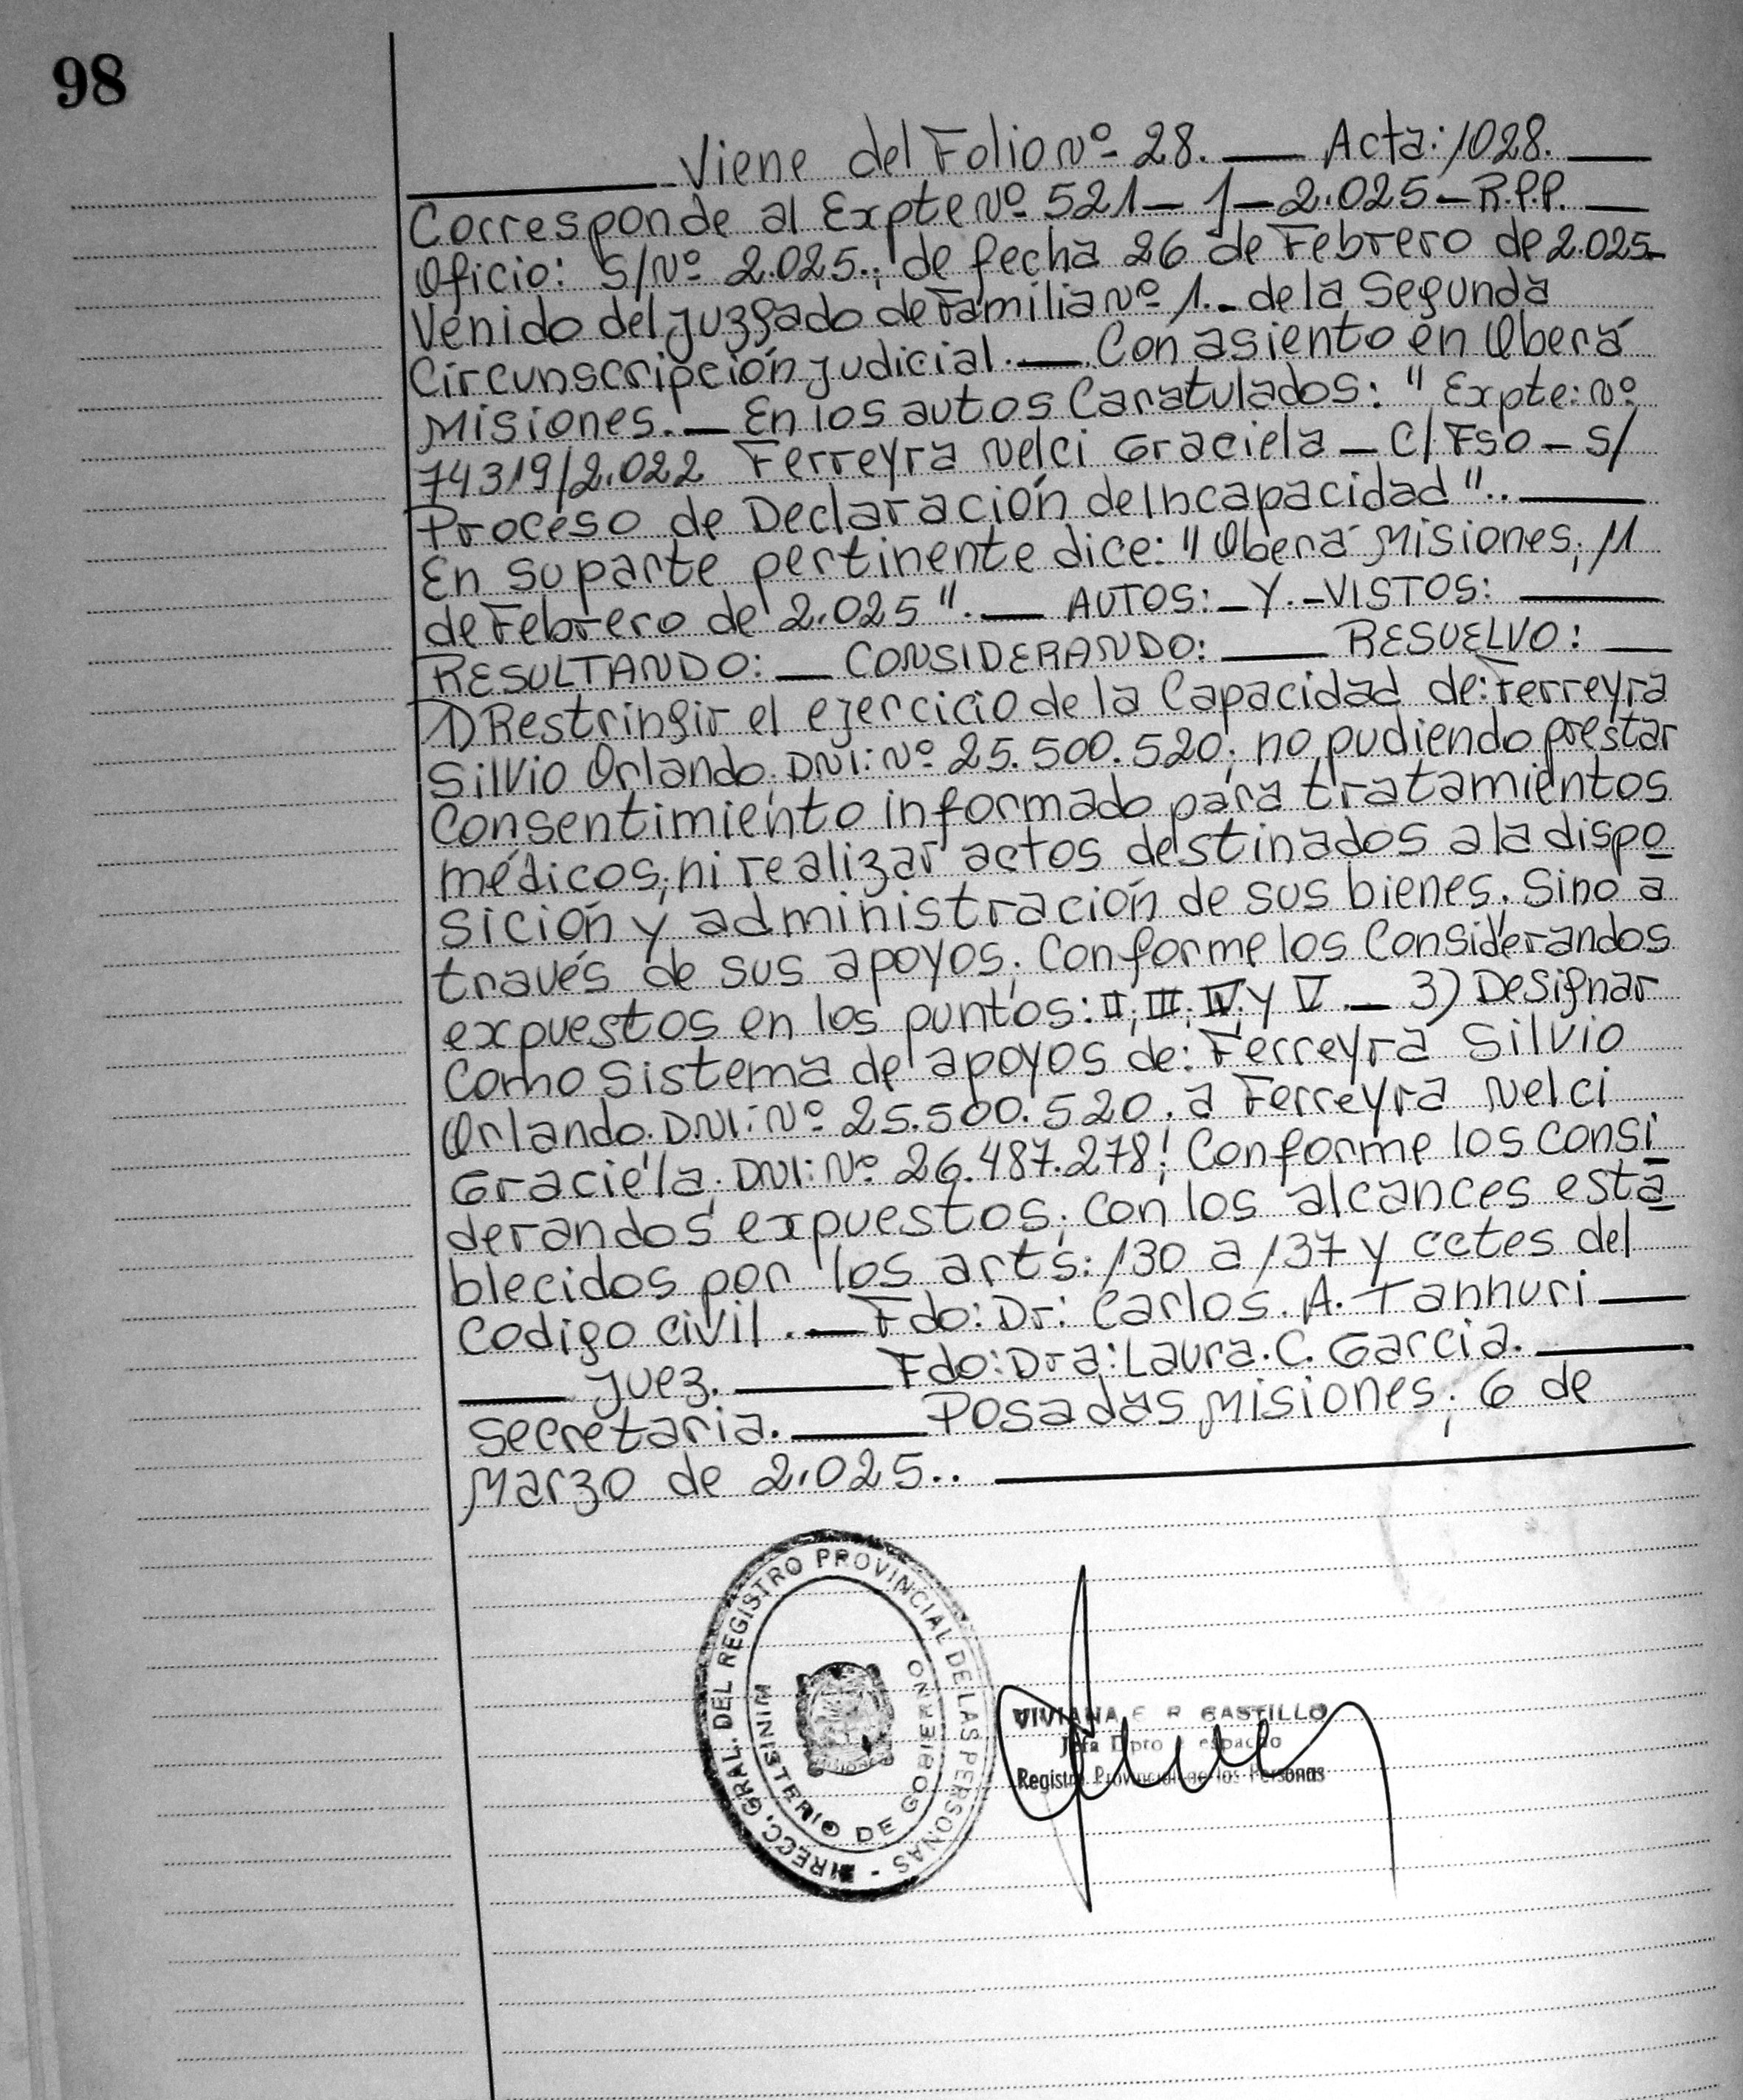 98
Viene del Folio Nº 28. — Acta: 1028. —
Corresponde al Expte Nº 521 — 1 — 2.025 — R.P.P. —
Oficio: S/Nº 2.025.; de fecha 26 de Febrero de 2.025.
Venido del Juzgado de Familia Nº 1._ de la Segunda
Circunscripción Judicial. — Con asiento en Oberá
Misiones. — En los autos Caratulados: " Expte: Nº
74319/2.022 Ferreyra Nelci Graciela — C/ FSO — S/
Proceso de Declaración de Incapacidad ".. —
En su parte pertinente dice: " Oberá Misiones; 11
de Febrero de 2.025 ". — AUTOS: _ Y._ VISTOS: —
RESULTANDO: — CONSIDERANDO: — RESUELVO: —
1) Restringir el ejercicio de la Capacidad de: Ferreyra
Silvio Orlando; DNI: Nº 25.500.520; no pudiendo prestar
Consentimiento informado para tratamientos
médicos; ni realizar actos destinados a la dispo
sición y administración de sus bienes. Sino a
través de sus apoyos; Conforme los Considerandos
expuestos en los puntos: II; III; IV; y V — 3) Designar
Como Sistema de apoyos de: Ferreyra Silvio
Orlando. DNI: Nº 25.500.520. a Ferreyra Nelci
Graciela. DNI: Nº 26.487.278; Conforme los consi
derandos expuestos; con los alcances esta
blecidos por los arts: 130 a 137 y cctes del
Codigo civil. — Fdo: Dr: Carlos. A. Tannuri —
— Juez. — Fdo: Dra: Laura. C. Garcia. —
Secretaria. — Posadas Misiones; 6 de
Marzo de 2.025.. —
DIRECC. GRAL. DEL REGISTRO PROVINCIAL DE LAS PERSONAS -
MINISTERIO DE GOBIERNO
MISIONES
VIVIANA E. R. CASTILLO
Jefa Dpto espacho
Registro Provincial de las Personas